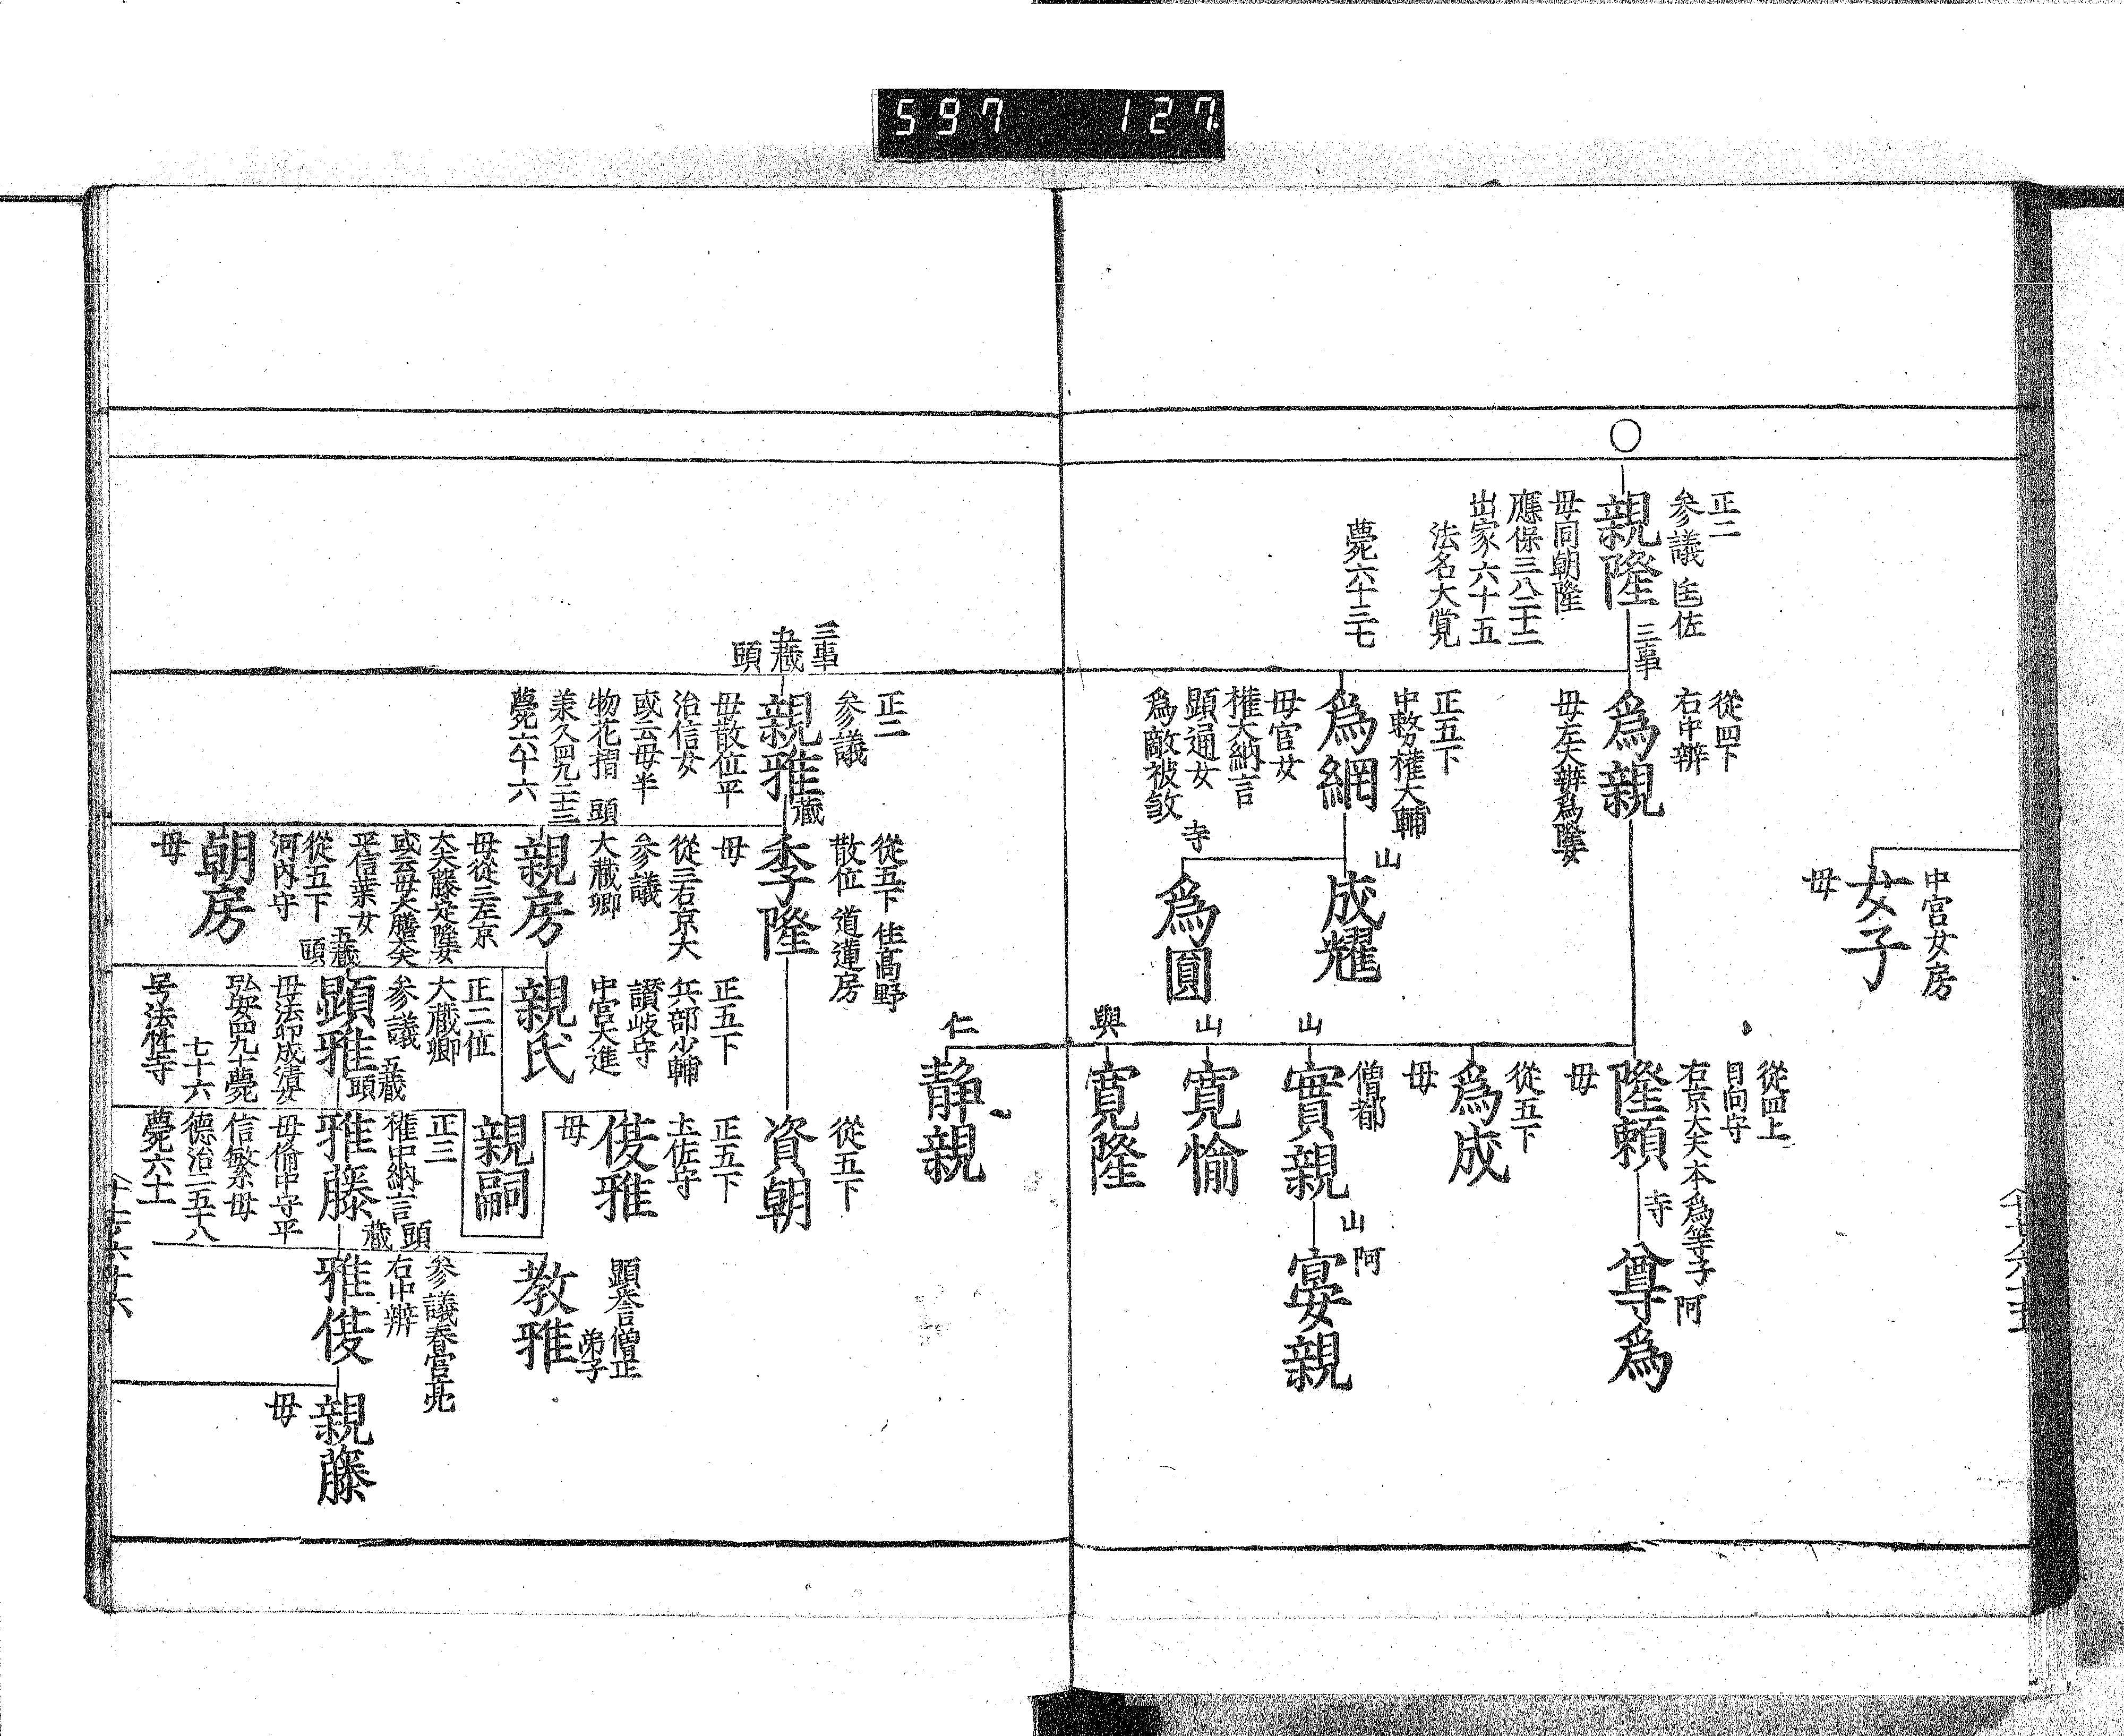 597 127
中宮女房
女子
母
正二
参議 匡佐
親隆
三事
母同朝隆
應保三八廿二
出家六十五
法名大覚
薨六十三七
従四下
右中辨
為親
母左大辨為隆女
正五下
中務権大輔
為綱
母官女
権大納言
顕通女
為敵被殺
山
成耀
寺
為圓
従四上
日向守
右京大夫本為等子
隆頼
母
寺
阿
尊為
従五下
為成
母
山
僧都
實親
山
阿
宴親
山
寛愉
興
寛隆
仁
静親
三事
五蔵
頭
正二
参議
親雅
母散位平
治信女
或云母半
物花摺
承久四九廿三
薨六十六
蔵
従五下 住高野
散位 道蓮房
季隆
母
従五下
資朝
頭
従三右京大
参議
大蔵卿
親房
母従三左京
大夫藤定隆女
或云母大膳大夫
平信業女
従五下
河内守
朝房
母
正五下
兵部少輔
讃岐守
中宮大進
親氏
正五下
土佐守
俊雅
母
親嗣
五蔵
頭
正二位
大蔵卿
参議
顕雅
母法印成清女
弘安四九十薨
七十六
号法性寺
五蔵
頭
正三
権中納言
雅藤
母備中守平
信繁母
徳治二五十八
薨六十一
顕誉僧正
弟子
教雅
頭
蔵
参議春宮亮
右中辨
雅俊
親藤
母